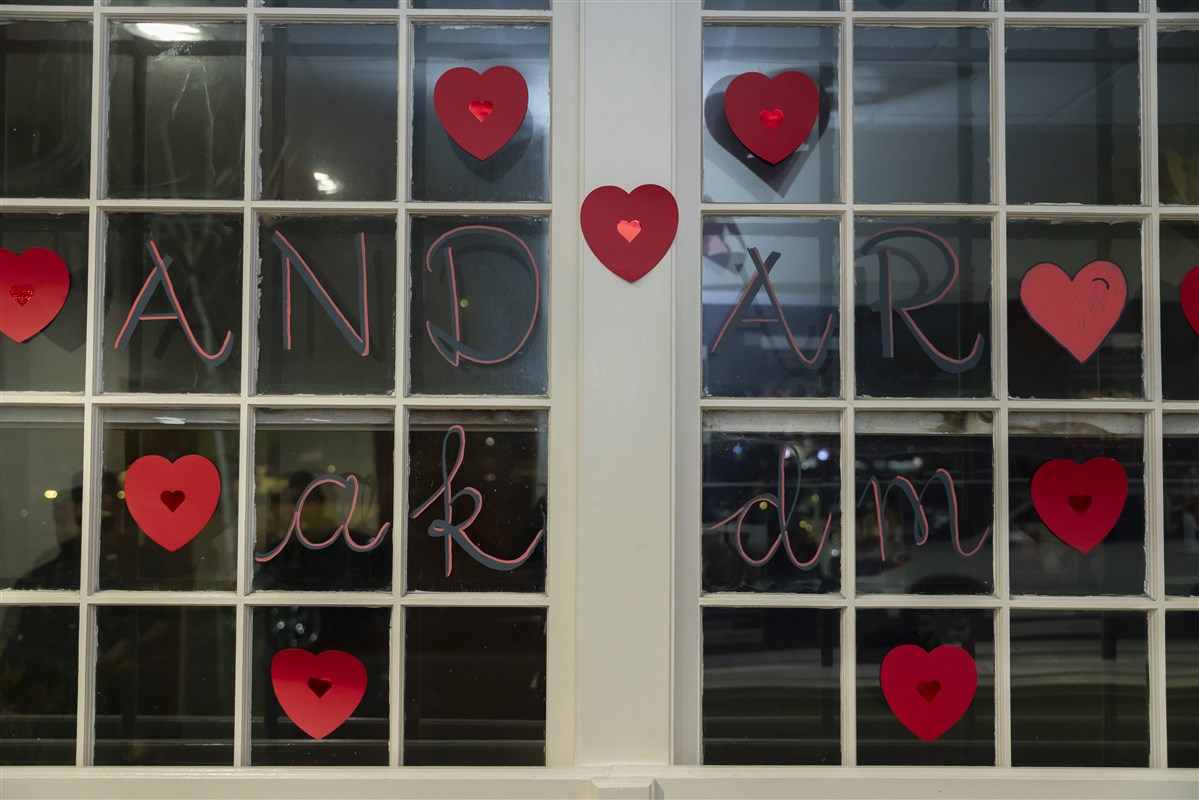 AND AR
ak dm